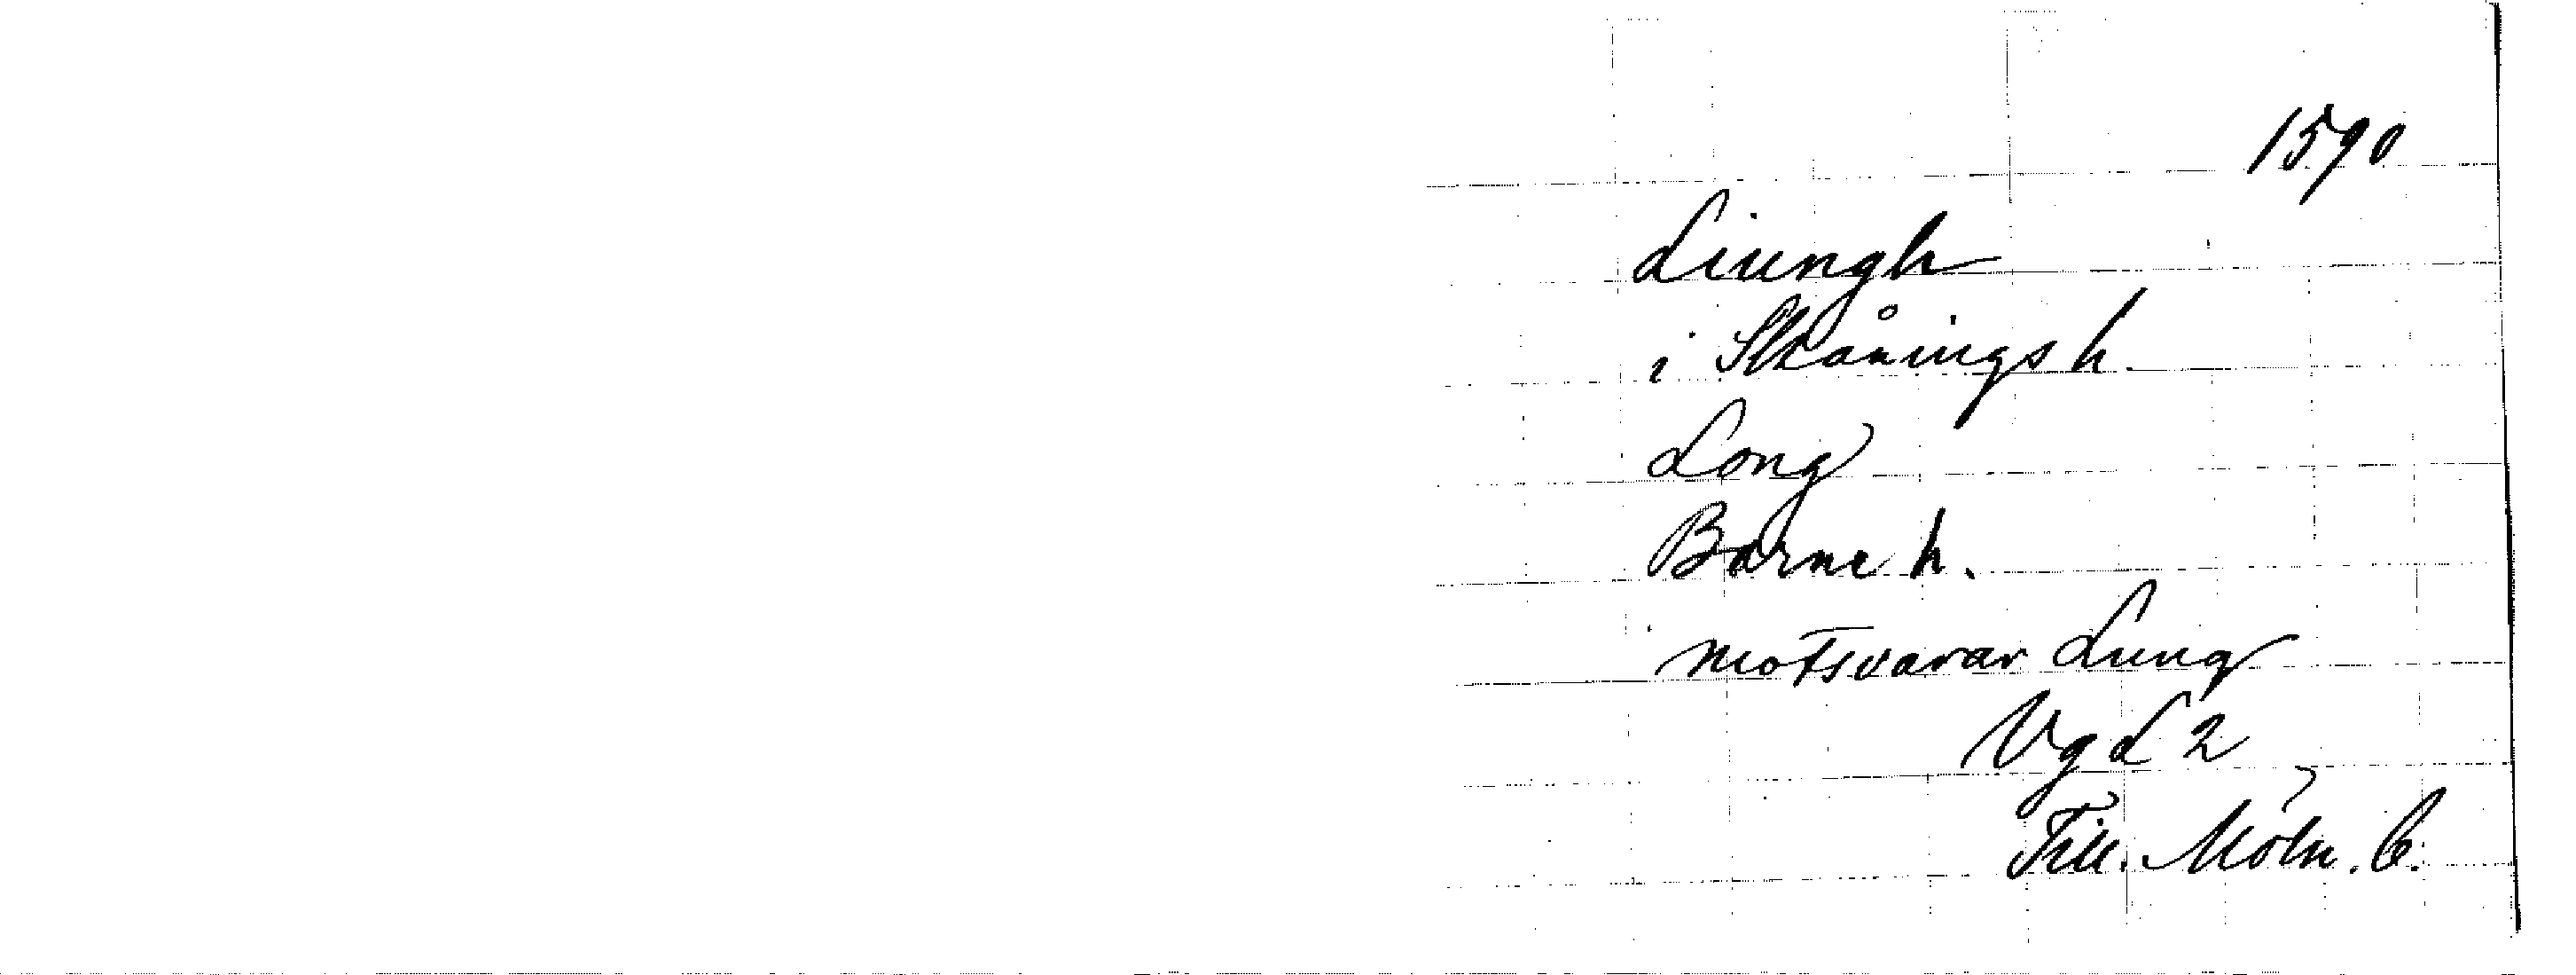 1590
Liungh
i Skånings h.
Long
Barne h.
motsvarar Lung
VgL 2
Till. Möln. b.